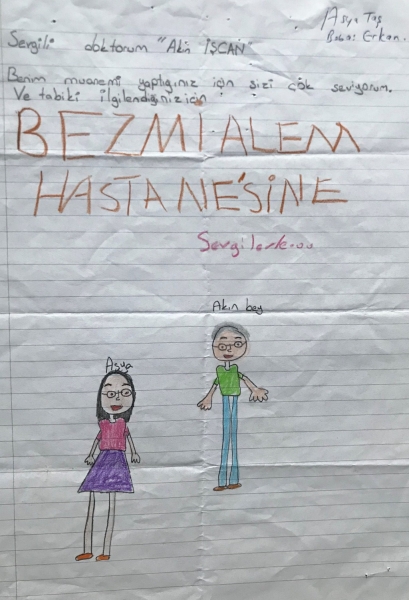 Asya Taş
Baba: Erkan.
Sevgili doktorum "Akın İŞCAN"
Benim muanemi yaptığınız için sizi çok seviyorum.
Ve tabiki ilgilendiğiniz için
BEZMİALEM
HASTANE'SİNE
Sevgilerle...
Akın bey
Asya